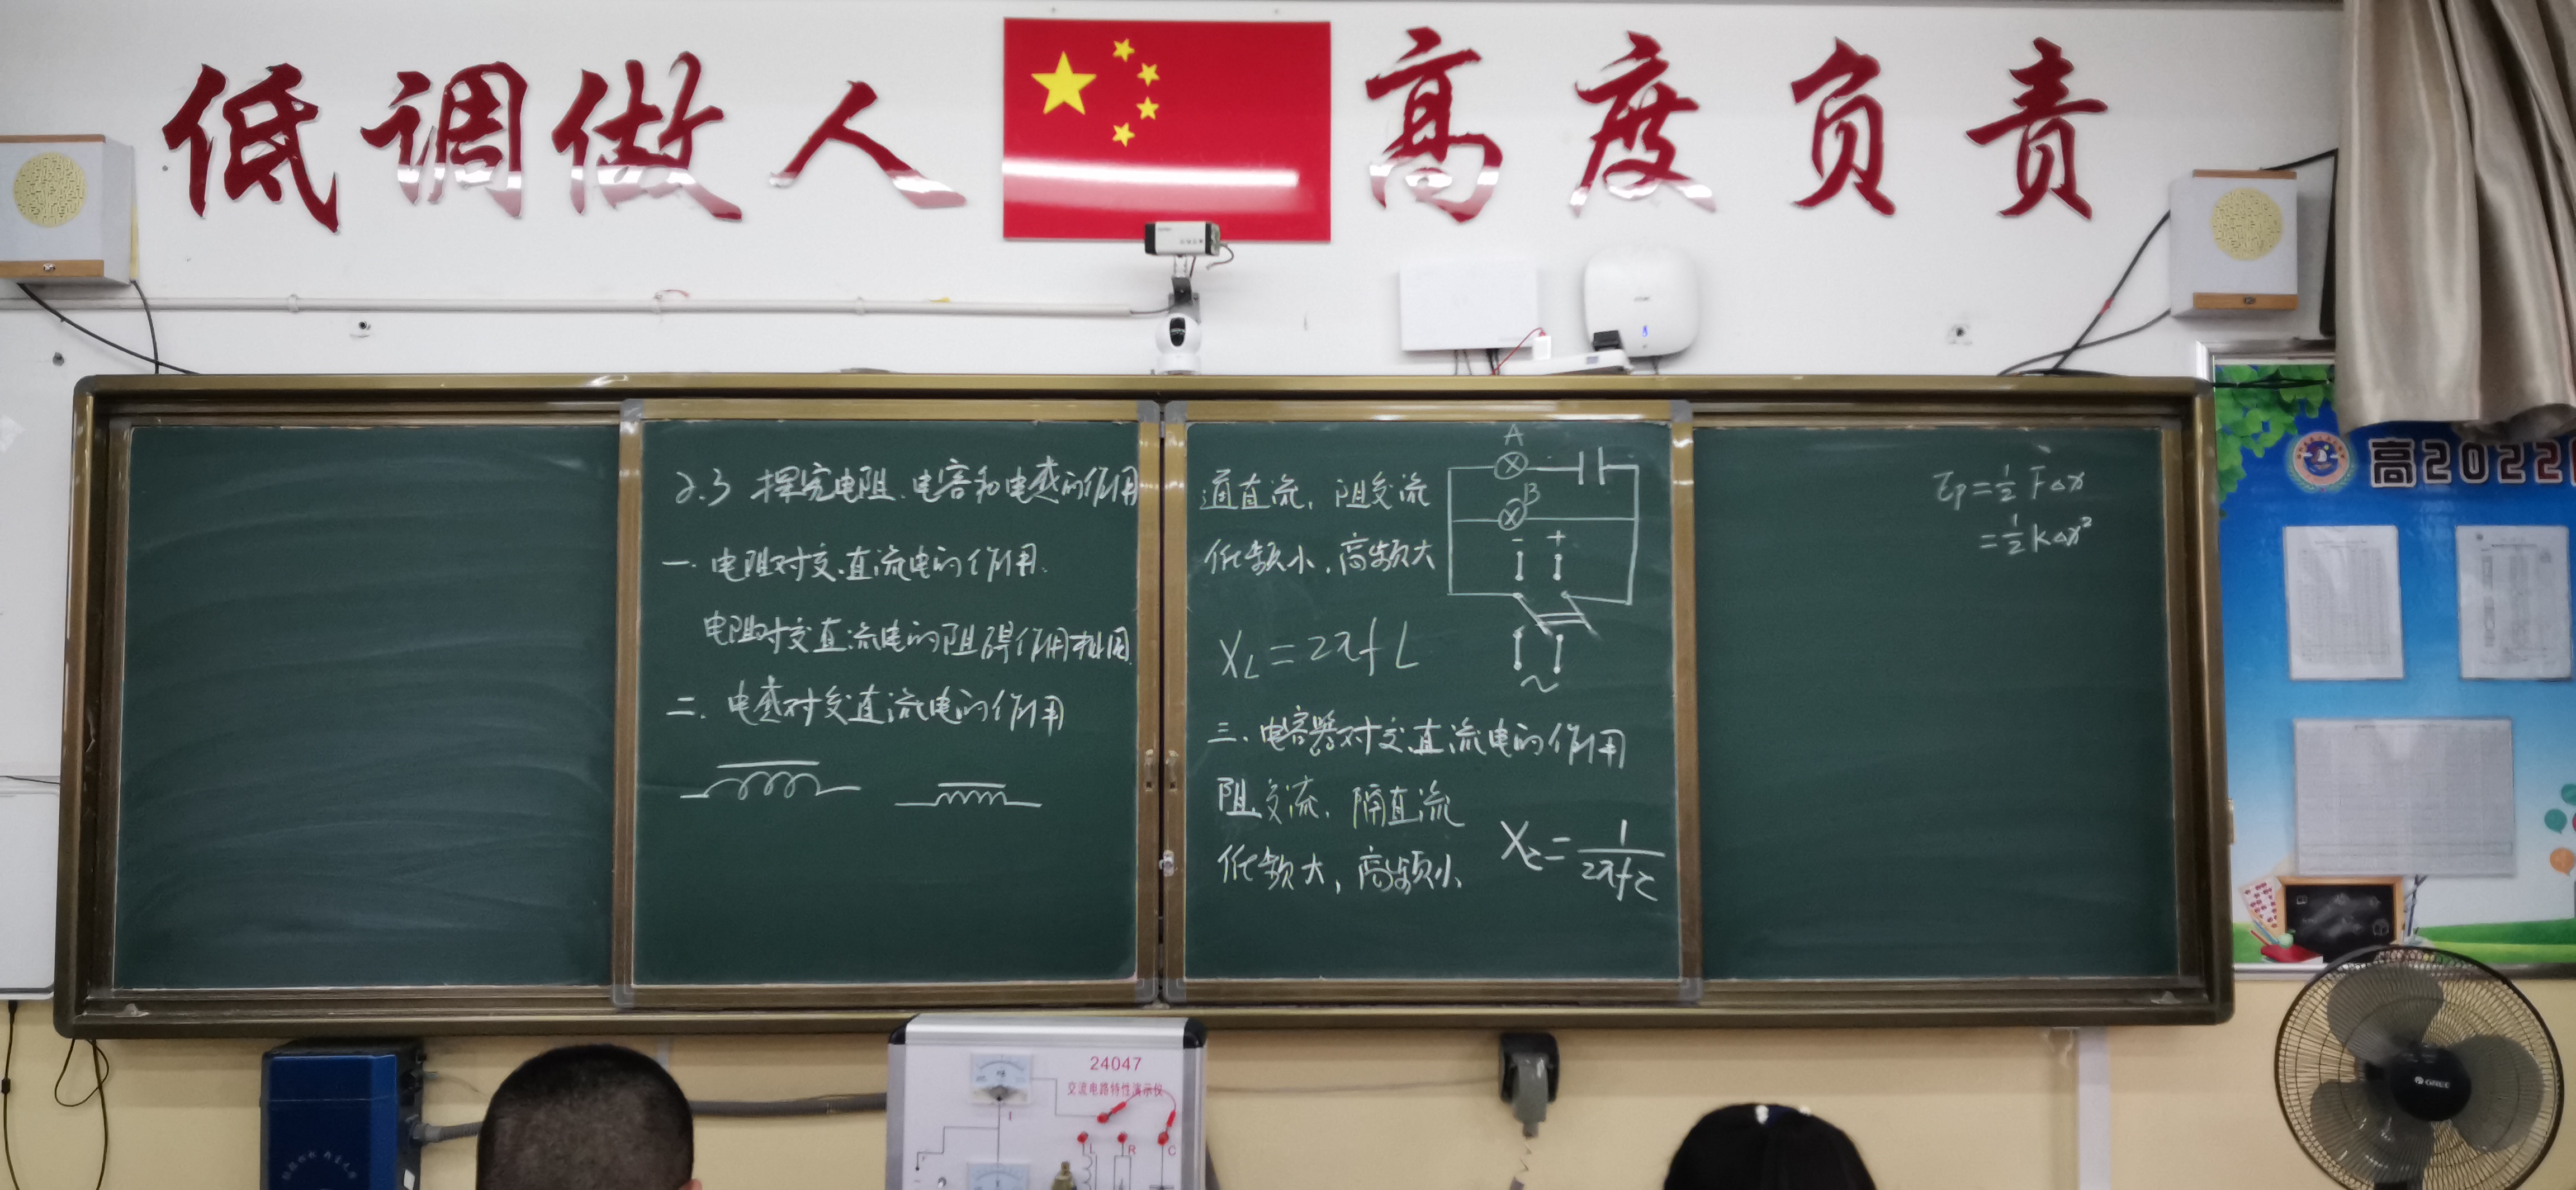 低调做人 高度负责
高2022
2.3 探究电阻、电容和电感的作用
一. 电阻对交、直流电的作用.
电阻对交直流电的阻碍作用相同.
二. 电感对交直流电的作用
通直流, 阻交流
低频小, 高频大
X_L=2πfL
A
B
- +
~
三. 电容器对交、直流电的作用
阻交流, 隔直流
低频大, 高频小
X_C=1/(2πfC)
E_P=1/2 F△x
=1/2 k△x²
24047
交流电路特性演示仪
L R C
GREE